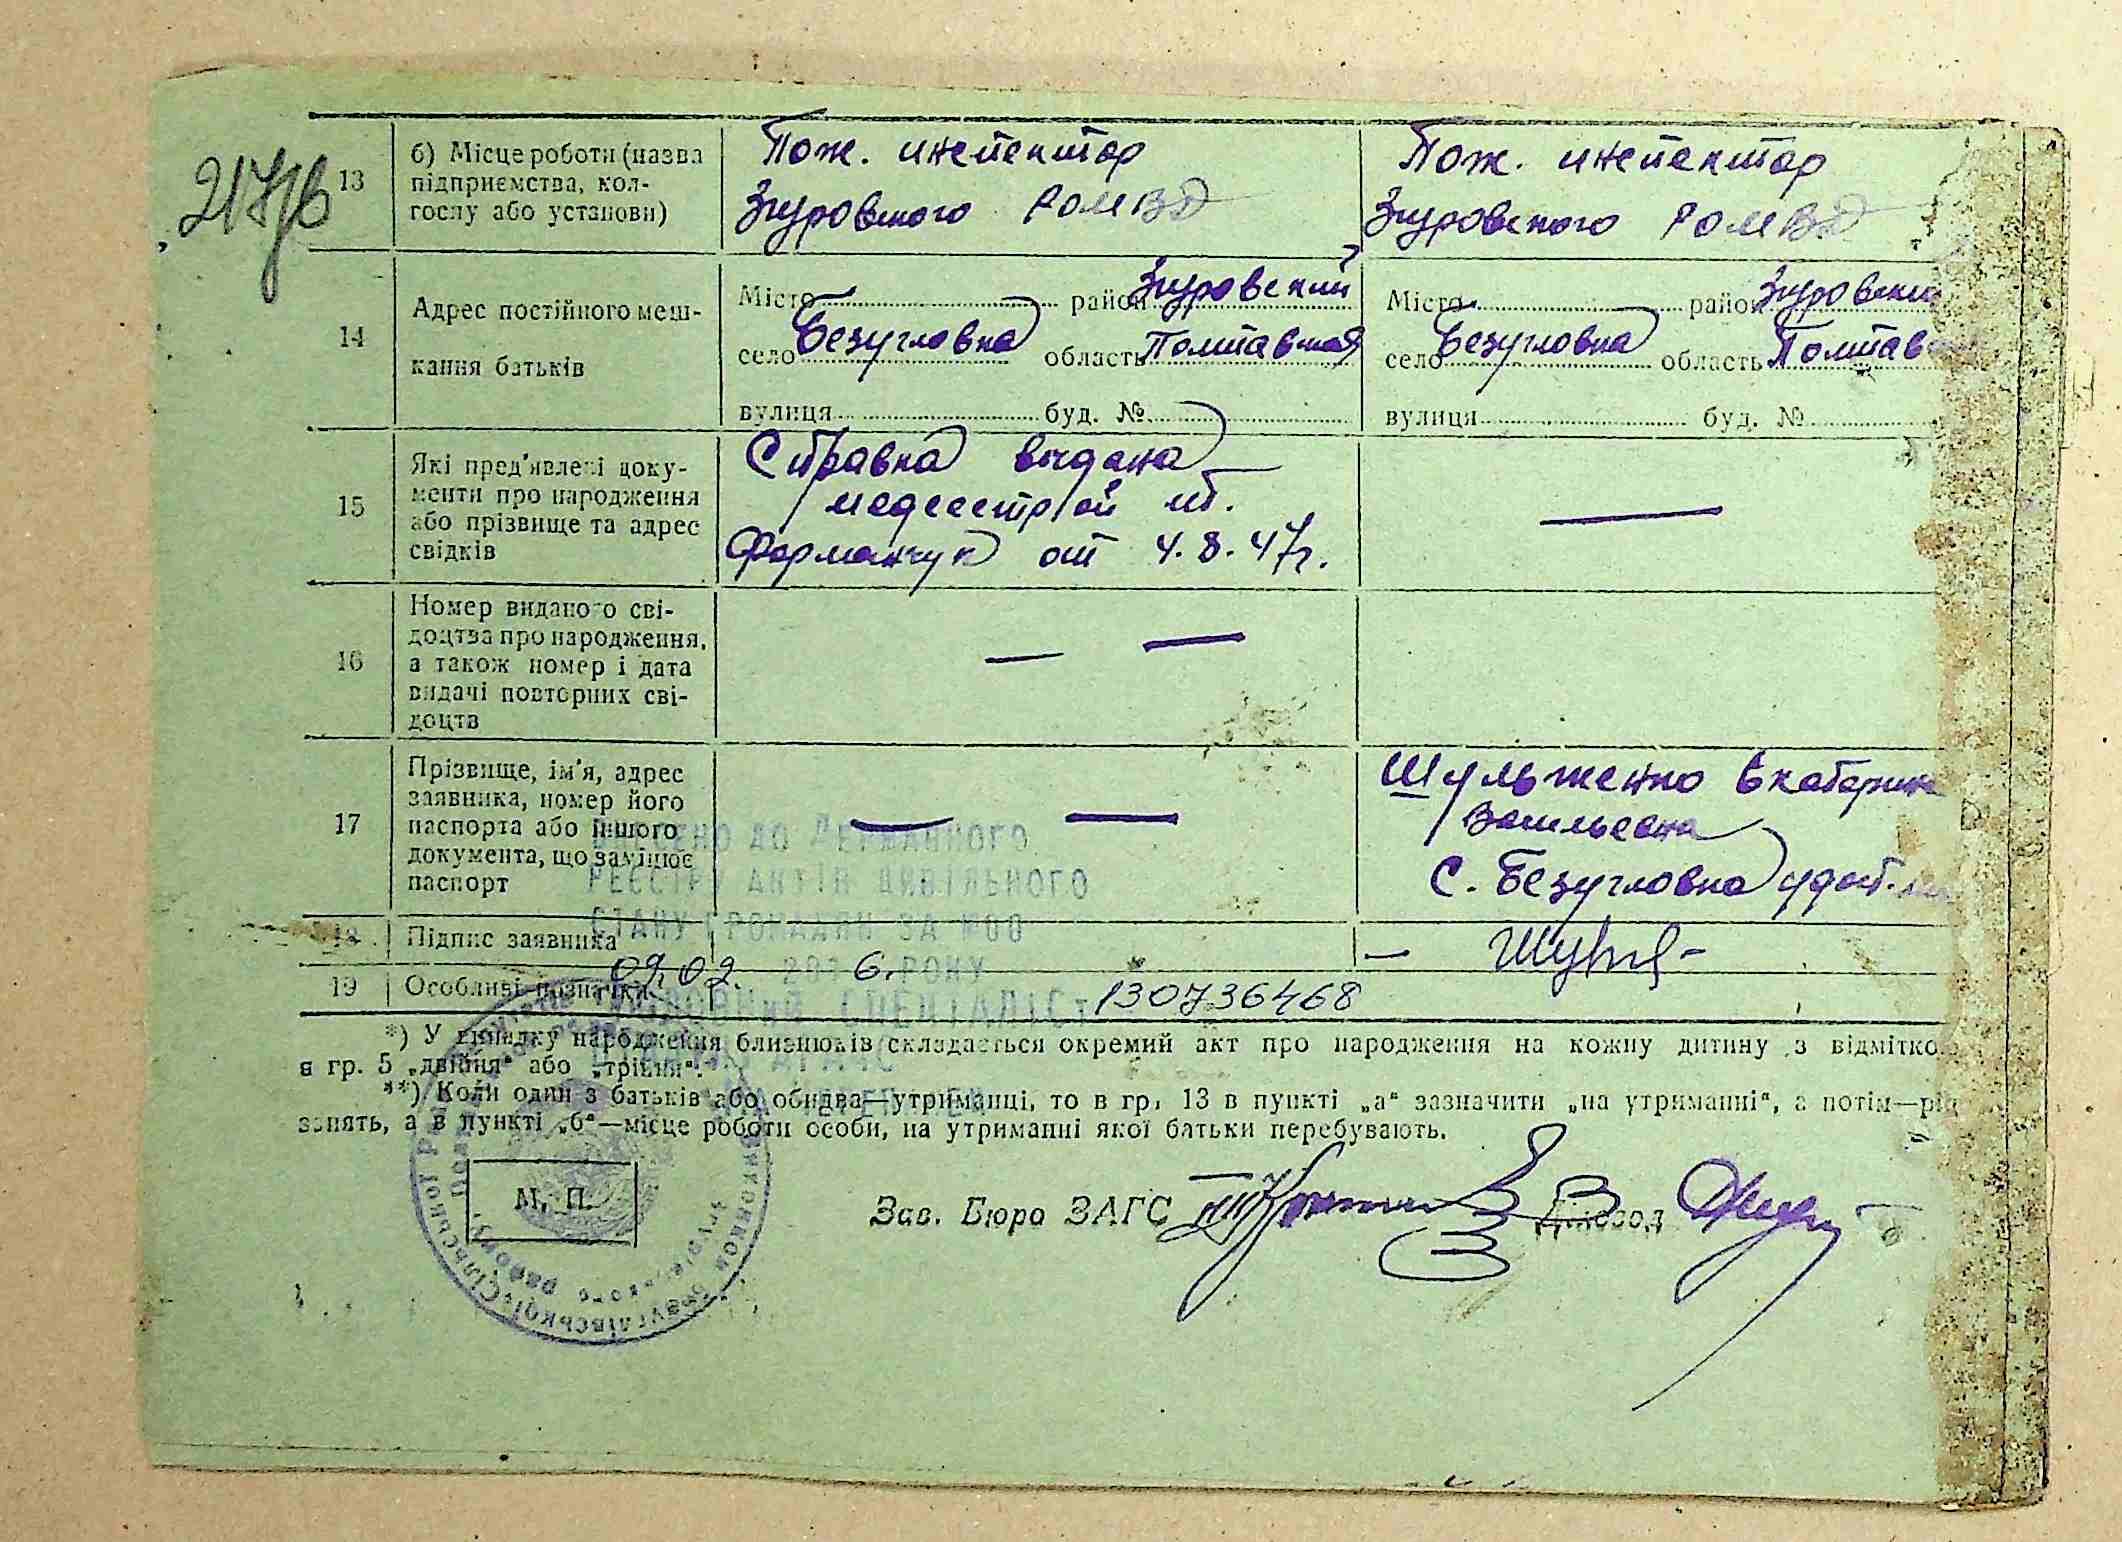 217зв
13
б) Місце роботи (назва
підприємства, кол-
госпу або установи)
Пож. инспектор
Згуровского РОМВД
Пож. инспектор
Згуровского РОМВД
14
Адрес постійного меш-
кання батьків
Місто район Згуровский
село Безугловка область Полтавская
вулиця буд. №
Місто район Згуровский
село Безугловка область Полтав
вулиця буд. №
15
Які пред'явлені доку-
менти про народження
або прізвище та адрес
свідків
Справка выдана
медсестрой
Форманчук от 4.8.47г.
—
16
Номер виданого сві-
доцтва про народження,
а також номер і дата
видачі повторних сві-
доцтв
— —
17
Прізвище, ім'я, адрес
заявника, номер його
паспорта або іншого
документа, що замінює
паспорт
— —
Шульженко Екатерина
Васильевна
с. Безугловка
ВНЕСЕНО ДО ДЕРЖАВНОГО
РЕЄСТРУ АКТІВ ЦИВІЛЬНОГО
СТАНУ ГРОМАДЯН ЗА №00
09.02. 2016 РОКУ
1307364468
18
Підпис заявника
—
19
Особливі позначки
СПЕЦІАЛІСТ
*) У випадку народження близнюків складається окремий акт про народження на кожну дитину з відмітко
в гр. 5 „двійня" або „трійня".
**) Коли один з батьків або обидва—утриманці, то в гр. 13 в пункті „а" зазначити „на утриманні", а потім—рід
занять, а в пункті „б"—місце роботи особи, на утриманні якої батьки перебувають.
М. П.
Зав. Бюро ЗАГС Діловод